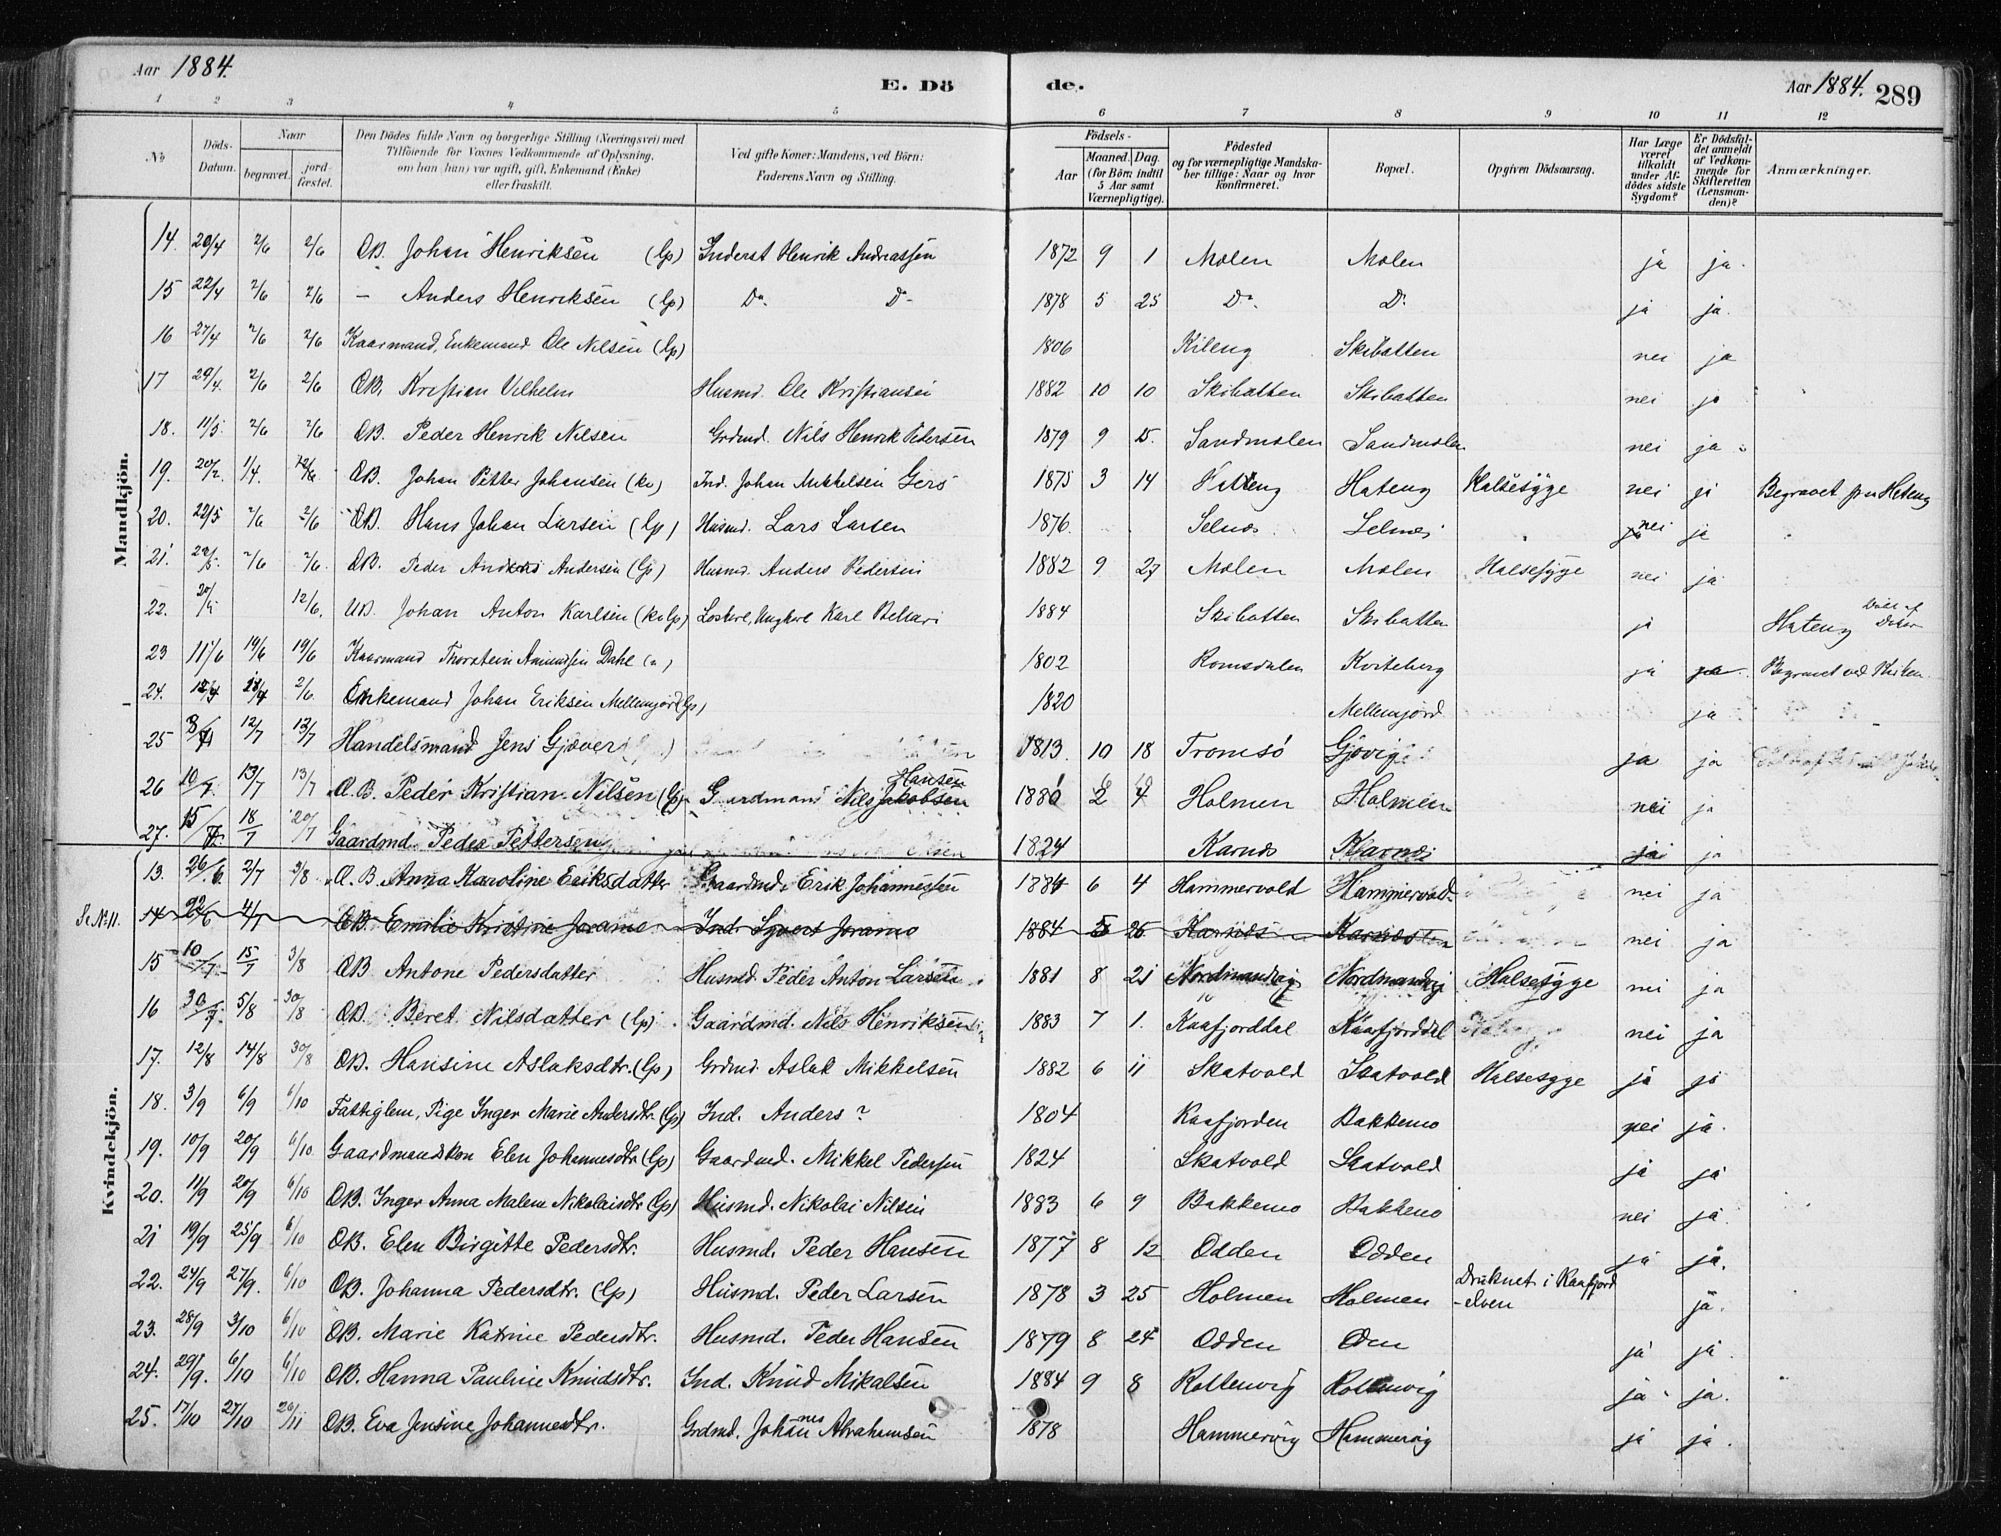 Aar 1884.
E. Dö
de.
Aar 1884. 289
1 2 3 4 5 6 7 8 9 10 11 12
No
Döds-Datum.
Naar
begravet. jordfæstet.
Den Dödes fulde Navn og borgerlige Stilling (Næringsvei) med
Tilföiende for Voxnes Vedkommende af Oplysning,
om han (hun) var ugift, gift, Enkemand (Enke)
eller fraskilt.
Ved gifte Koner: Mandens, ved Börn:
Faderens Navn og Stilling.
Födsels-
Aar
Maaned. Dag.
(for Börn indtil
5 Aar samt
Værnepligtige).
Födested
og for værnepligtige Mandskaber tillige: Naar og hvor
konfirmeret.
Bopæl.
Opgiven Dödsaarsag.
Har Læge
været
tilkaldt
under Afdödes sidste
Sygdom?
Er Dödsfaldet anmeldt
af Vedkommende for
Skifteretten
(Lensmanden)?
Anmærkninger.
Mandkjön.
14. 20/4 2/6 2/6 ÆB. Johan Henriksen (lp) Inderst Henrik Andreassen 1872 9 1 Molen Molen ja ja.
15 22/4 2/6 2/6 - Anders Henriksen (lp) Do. Do- 1878 5 25 Do. Do. ja ja.
16 27/4 2/6 2/6 Kaarmand, Enkemand Ole Nilsen (lp) 1806 Kileng Skibotten nei ja
17 29/4. 2/6 2/6 ÆB. Kristian Vilhelm Husmd. Ole Kristiansen 1882 10 10 Skibotten Skibotten nei ja
18. 11/5 2/6 2/6 ÆB. Peder Henrik Nilsen Grdmd. Nils Henrik Pedersen 1879 9 Sandmolen Sandmolen nei ja
19. 20/2. 1/4. 12/6 ÆB. Johan Petter Johansen Ind. Johan Mikkelsen 1875 3 14 Hateng Halsesyge nei ja Begravet paa Hateng
20. 22/5 2/6 2/6 ÆB. Hans Johan Larsen (lp) Husmd. Lars Larsen 1876. Selnes Selnes nei ja
21. 2/6 2/6. ÆB. Peder Andersen (lp) Husmd. Anders Pedersen 1882 9 27 Molen Molen Halsesyge nei ja
22. 12/6. Johan Anton Karlsen Ungkarl Karl 1884 Skibotten Skibotten ja Hateng
23 11/6 19/6 19/6 Kaarmand Thorstein Amundsen Dahl 1802 Romsdalen Kviteberg ja ja Begravet ved Kirken
24. 2/6. Enkemand Johan Eriksen Mellemjord (lp) 1820 Mellemjord ja
25 12/7 13/7 Handelsmand Jens Gjæver 1813. 10 18 Tromsö Gjövig ja ja
26 10/7. 13/7 13/7 Æ.B. Peder Kristian Nilsen (lp) Gaardmand Nils Jakobsen Hansen 4 Holmen Holmen nei ja
27. 15/7. 18/7 20/7 Gaardmd. Peder Pettersen 1824 Karnes Karnes ja ja
Kvindekjön.
13. 26/6 2/7 3/8 Æ.B. Anna Karoline Eriksdatter Gaardmd. Erik Johannessen 1884 6 4 Hammervold Hammervold nei ja
Se No 11. 14 22/6 4/7 ÆB. Emilie Kristine Ind. 1884 5 25 Karnes Karnes nei ja
15 10/7 15/7 3/8 ÆB Antone Pedersdatter Husmd. Peder Anton Larsen 1881 8 21 Nordmandvig Nordmandvig Halsesyge nei ja
16 30/7 5/8 30/8 ÆB. Beret Nilsdatter (lp). Gaardmd. Nils Henriksen 1883 7 1. Kaafjorddal Kaafjorddal nei ja
17. 12/8 14/8 30/8 ÆB. Hansine Aslaksdtr. (lp) Grdmd. Aslak Mikkelsen 1882 6 11 Skatvold Skatvold Halsesyge ja ja
18. 3/9 6/9 6/10 Fattiglem, Pige Inger Marie Andersdtr. (lp) Ind. Anders ? 1804 Kaafjorden Bakkemo nei ja.
19. 10/9 20/9 6/10 Gaardmandskone Elen Johannesdtr. (lp) Gaardmd. Mikkel Pedersen 1824 Skatvold Skatvold ja ja
20. 11/9 20/9 6/10 ÆB. Inger Anna Malene Nikolaisdtr. (lp) Husmd. Nikolai Nilsen 1883 6 9 Bakkemo Bakkemo nei ja.
21 19/9 25/9 6/10 ÆB. Elen Birgitte Pedersdtr. Husmd. Peder Hansen 1877 8 12 Odden Odden ja ja.
22. 24/9 27/9. 6/10 ÆB. Johanna Pedersdtr. (lp) Husmd. Peder Larsen 1878 3 25 Holmen Holmen Druknet i Kaafjord-elven ja.
23. 28/9 3/10 6/10 ÆB. Marie Katrine Pedersdtr. Husmd. Peder Hansen 1879 8 24 Odden Oden ja ja
24. 29/9. 6/10 6/10 ÆB. Hanna Pauline Knudsdtr. Ind. Knud Mikalsen 1884 9 8 Kottenvig Kottenvig ja ja.
25. 17/10 27/10 ÆB. Eva Jensine Johannesdtr. Grdmd. Johannes Abrahamsen 1878 Hammervig Hammervig ja ja.